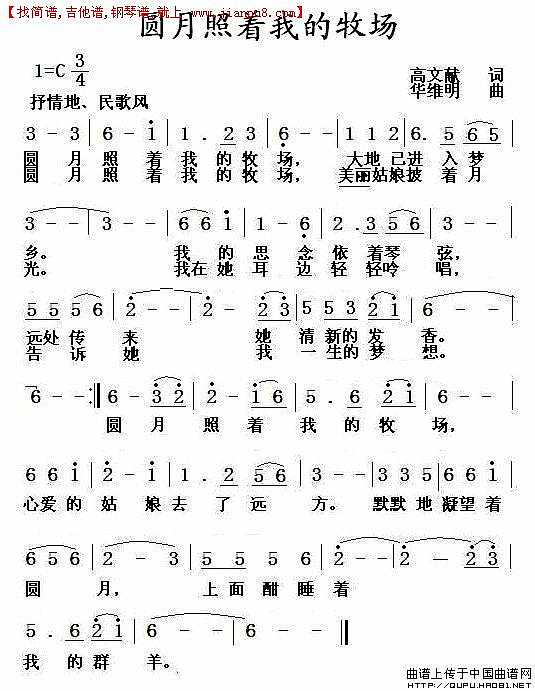 【找简谱,吉他谱,钢琴谱 就上 www.jianpu8.com】
圆月照着我的牧场
1=C 3/4
高文献 词
华维明 曲
抒情地、民歌风
3-3|6-1|1.23|6--|112|6.565|
圆 月 照 着 我 的 牧 场, 大地 已进 入 梦
圆 月 照 着 我 的 牧 场, 美丽姑娘披 着 月
3--|3--|661|1-6|2.35|3--|
乡。 我 的 思 念 依 着 琴 弦,
光。 我在 她 耳 边 轻 轻吟 唱,
5556|2--|2-23|553321|6--|
远处 传 来 她 清 新的 发 香。
告 诉 她 我 一 生的 梦 想。
6--:|6-32|2-16|5.6|21|6--|
圆 月 照 着 我 的 牧 场,
661|2-1|1.256|3--|333|661|
心爱 的 姑 娘 去 了 远 方。 默默 地 凝望 着
656|2-3|555|2--|2-23|
圆 月, 上 面 酣 睡 着
5.6|21|6--|6--|
我 的 群 羊。
曲谱上传于中国曲谱网
@HTTP://QUPU.HAO81.NET